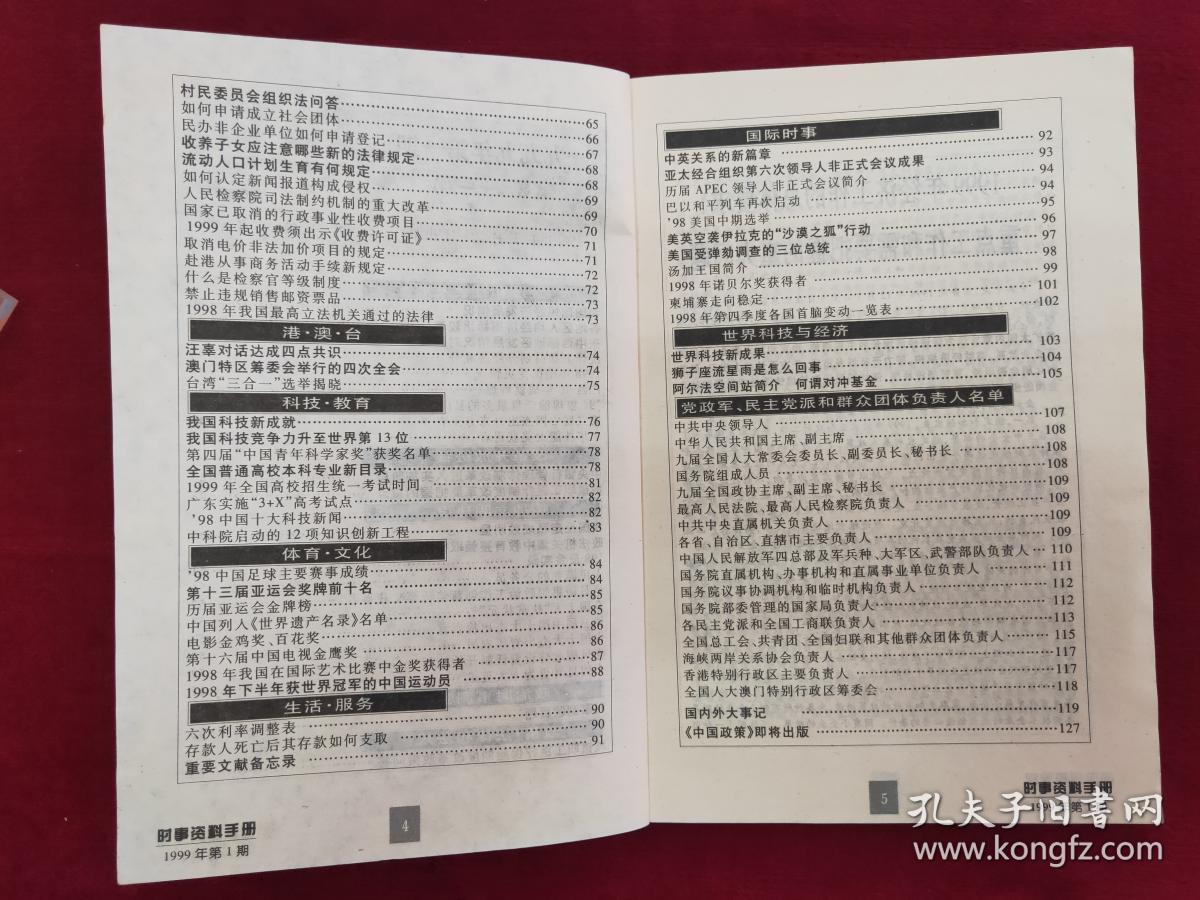 村民委员会组织法问答……65
如何申请成立社会团体……66
民办非企业单位如何申请登记……67
收养子女应注意哪些新的法律规定……68
流动人口计划生育有何规定……68
如何认定新闻报道构成侵权……69
人民检察院司法制约机制的重大改革……69
国家已取消的行政事业性收费项目……70
1999年起收费须出示《收费许可证》……71
取消电价非法加价项目的规定……71
赴港从事商务活动手续新规定……72
什么是检察官等级制度……72
禁止违规销售邮资票品……73
1998年我国最高立法机关通过的法律……73
港·澳·台
汪辜对话达成四点共识……74
澳门特区筹委会举行的四次全会……74
台湾“三合一”选举揭晓……75
科技·教育
我国科技新成就……76
我国科技竞争力升至世界第13位……77
第四届“中国青年科学家奖”获奖名单……78
全国普通高校本科专业新目录……78
1999年全国高校招生统一考试时间……81
广东实施“3+X”高考试点……82
’98中国十大科技新闻……82
中科院启动的12项知识创新工程……83
体育·文化
’98中国足球主要赛事成绩……84
第十三届亚运会奖牌前十名……84
历届亚运会金牌榜……85
中国列人《世界遗产名录》名单……85
电影金鸡奖、百花奖……86
第十六届中国电视金鹰奖……86
1998年我国在国际艺术比赛中金奖获得者……87
1998年下半年获世界冠军的中国运动员……88
生活·服务
六次利率调整表……90
存款人死亡后其存款如何支取……90
重要文献备忘录……91
时事资料手册
1999年第1期
4
国际时事
中英关系的新篇章……92
亚太经合组织第六次领导人非正式会议成果……93
历届APEC领导人非正式会议简介……94
巴以和平列车再次启动……94
’98美国中期选举……95
美英空袭伊拉克的“沙漠之狐”行动……96
美国受弹劾调查的三位总统……97
汤加王国简介……98
1998年诺贝尔奖获得者……99
柬埔寨走向稳定……101
1998年第四季度各国首脑变动一览表……102
世界科技与经济
世界科技新成果……103
狮子座流星雨是怎么回事……104
阿尔法空间站简介 何谓对冲基金……105
党政军、民主党派和群众团体负责人名单
中共中央领导人……107
中华人民共和国主席、副主席……108
九届全国人大常委会委员长、副委员长、秘书长……108
国务院组成人员……108
九届全国政协主席、副主席、秘书长……109
最高人民法院、最高人民检察院负责人……109
中共中央直属机关负责人……109
各省、自治区、直辖市主要负责人……109
中国人民解放军四总部及军兵种、大军区、武警部队负责人……110
国务院直属机构、办事机构和直属事业单位负责人……111
国务院议事协调机构和临时机构负责人……112
国务院部委管理的国家局负责人……112
各民主党派和全国工商联负责人……113
全国总工会、共青团、全国妇联和其他群众团体负责人……115
海峡两岸关系协会负责人……117
香港特别行政区主要负责人……117
全国人大澳门特别行政区筹委会……118
国内外大事记……119
《中国政策》即将出版……127
5
时事资料手册
1999年第1期
孔夫子旧书网
www.kongfz.com